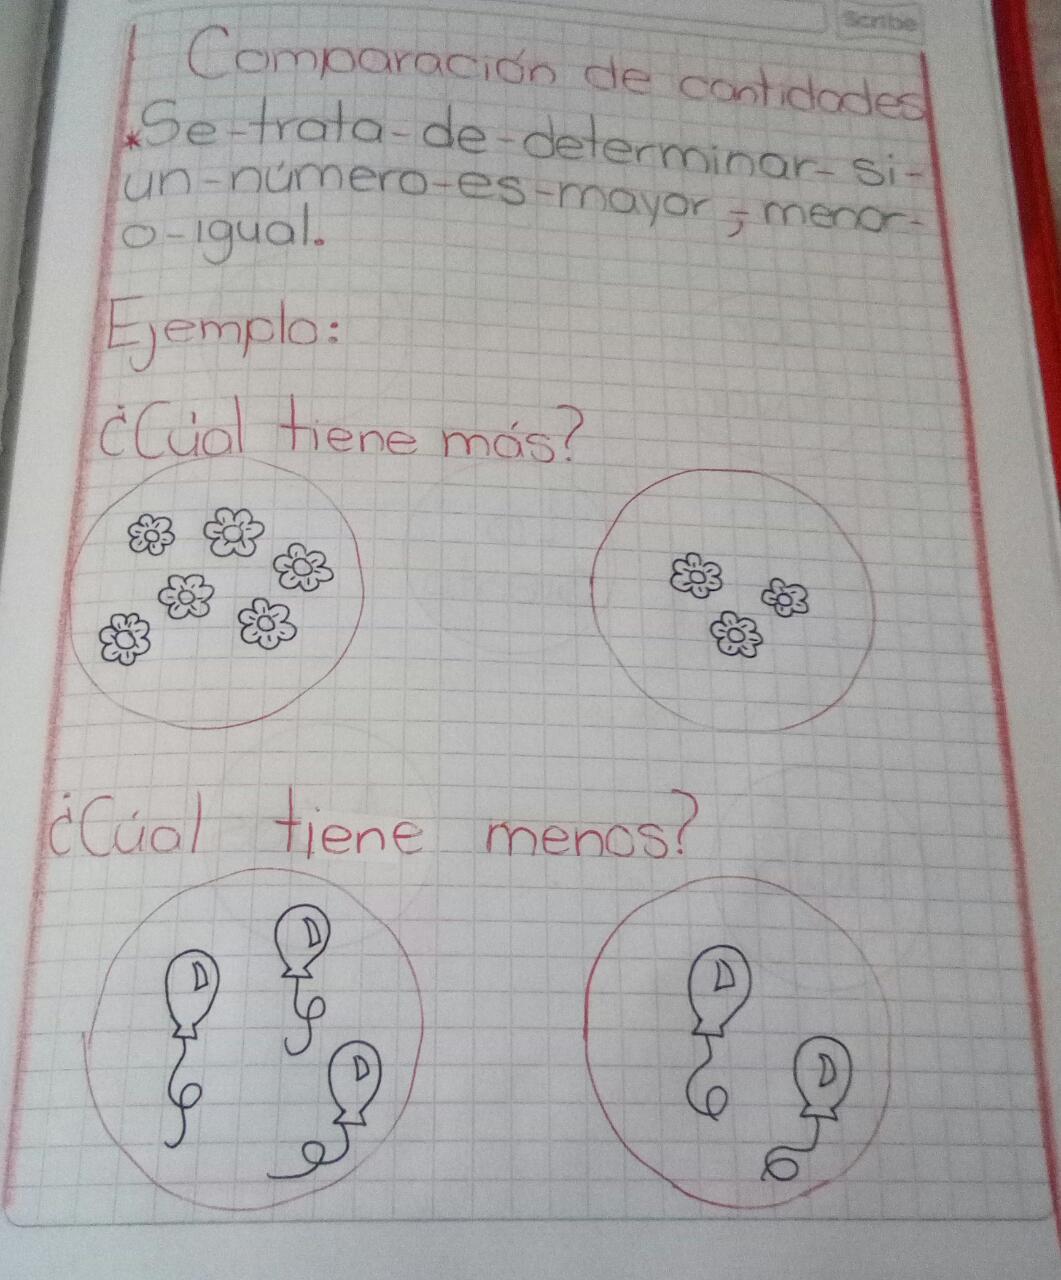 Scribe
Comparación de cantidades
*Se-trata-de-determinar-si-
un-número-es-mayor, menor-
o-igual.
Ejemplo:
¿Cúal tiene más?
¿Cúal tiene menos?